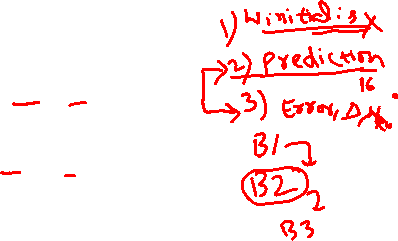 1) W initialis
2) prediction
16
3) Error, Δ
B1
B2
B3